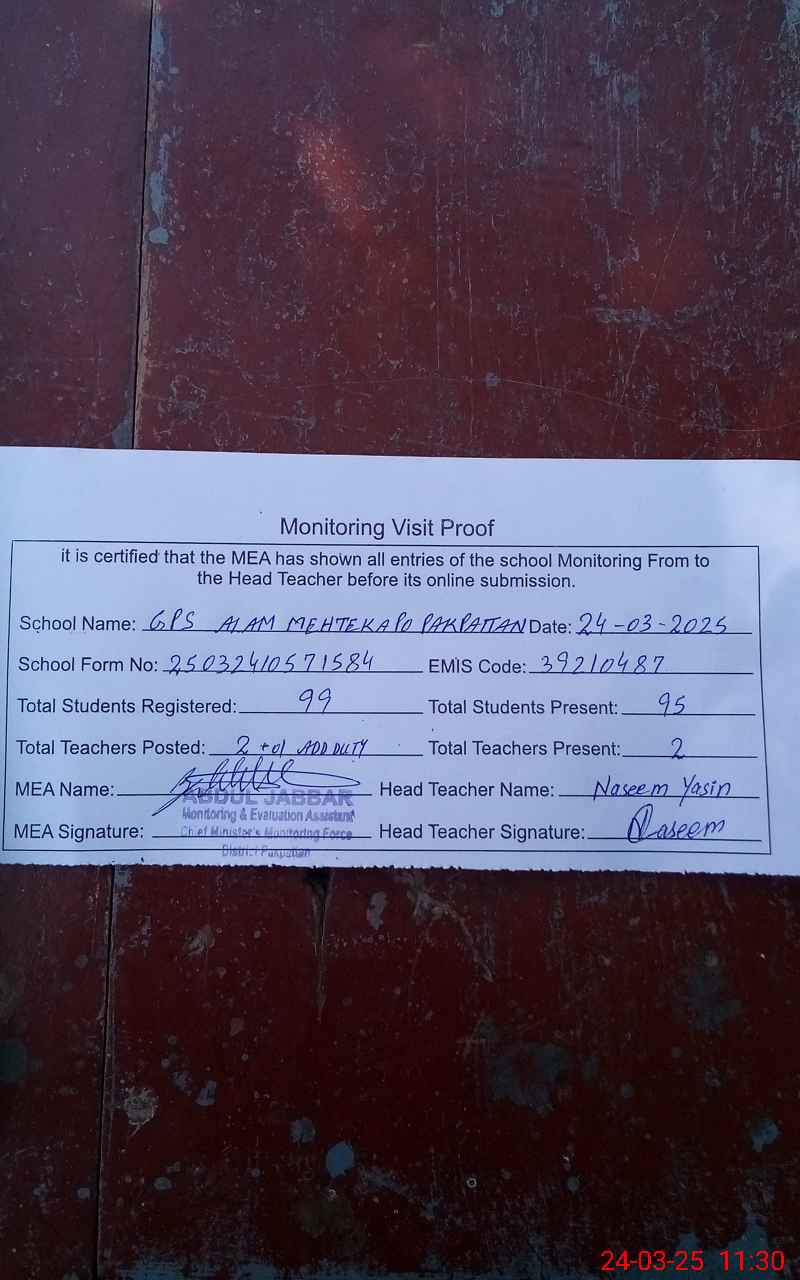 Monitoring Visit Proof
it is certified that the MEA has shown all entries of the school Monitoring From to
the Head Teacher before its online submission.
School Name: GPS ALAM MEHTEKA PO PAKPATTAN Date: 24-03-2025
School Form No: 25032410571584 EMIS Code: 39210487
Total Students Registered: 99 Total Students Present: 95
Total Teachers Posted: 2 +01 ADD DUTY Total Teachers Present: 2
MEA Name: Head Teacher Name: Naseem Yasin
ABDUL JABBAR
Monitoring & Evaluation Assistant
MEA Signature: Chief Minister's Monitoring Force Head Teacher Signature: Naseem
District Pakpattan
24-03-25 11:30